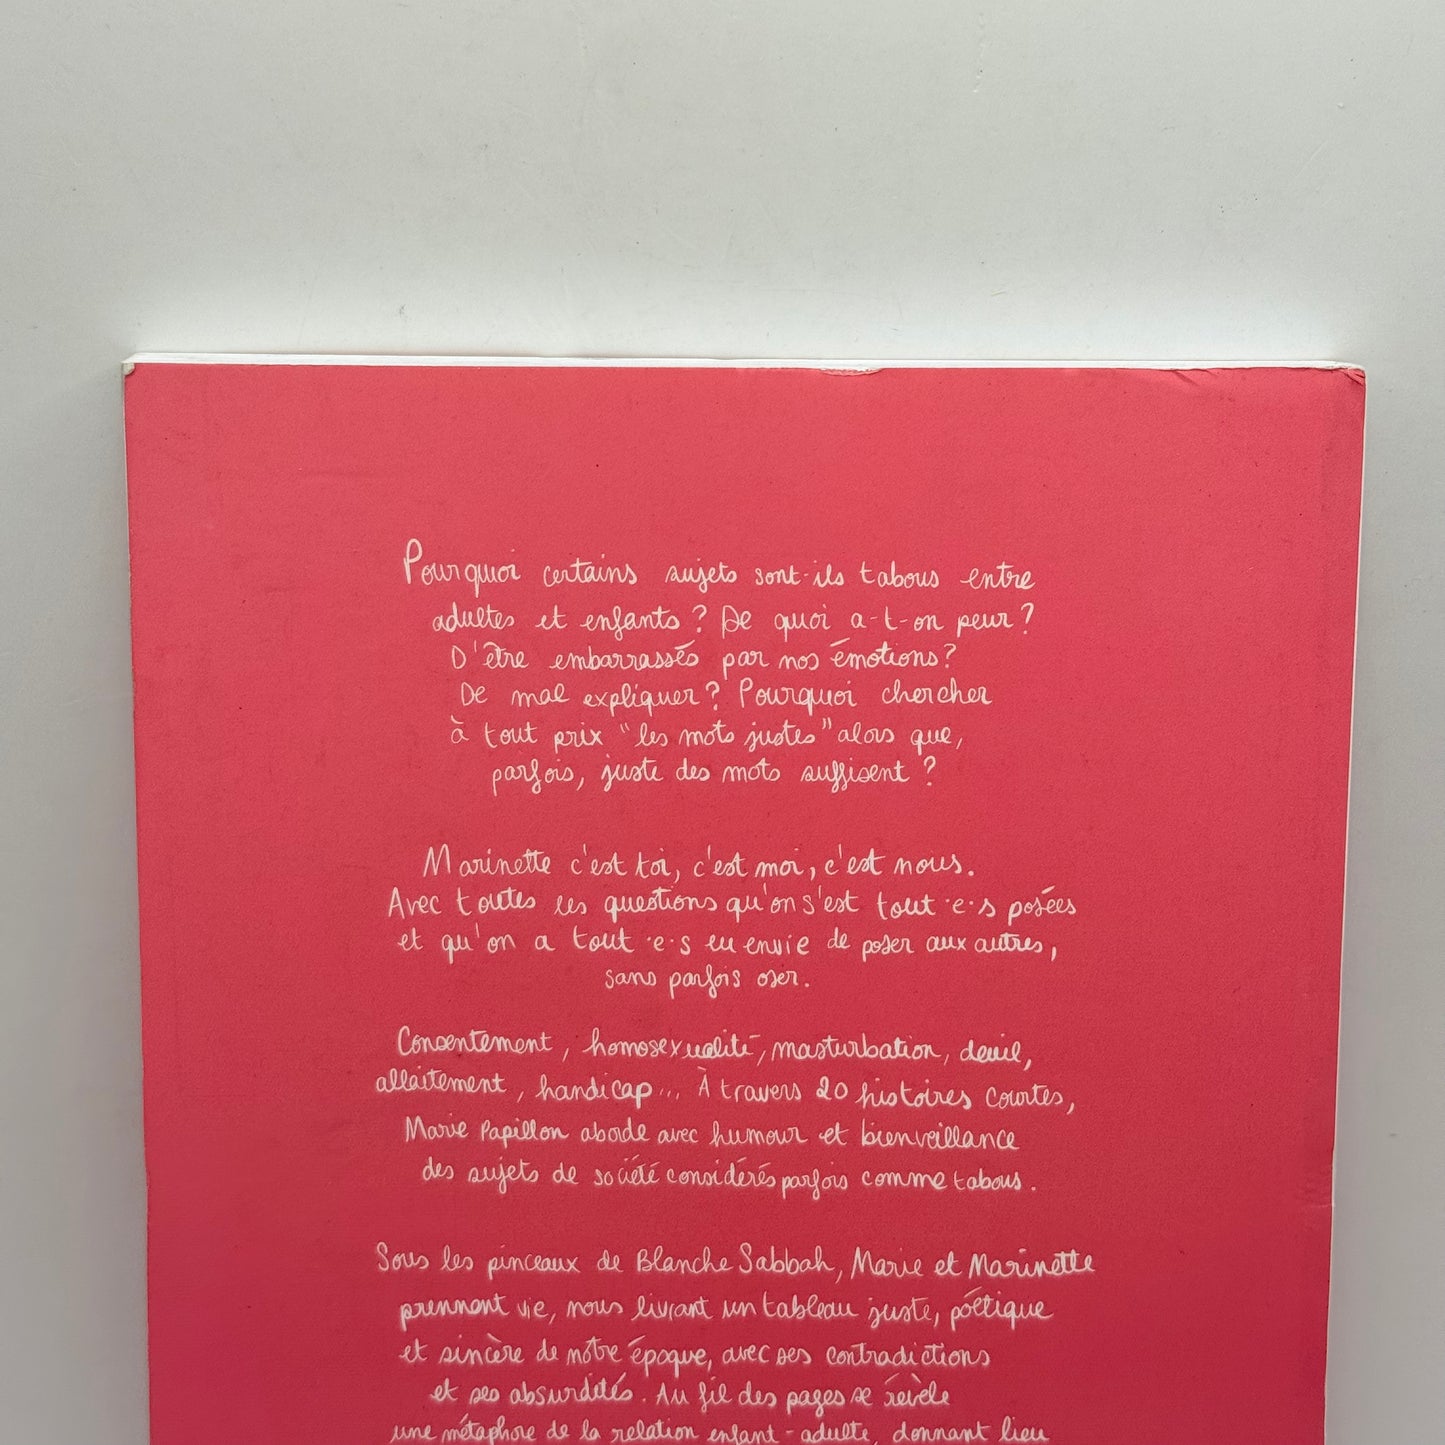 Pourquoi certains sujets sont-ils tabous entre
adultes et enfants ? De quoi a-t-on peur ?
D'être embarrassés par nos émotions ?
De mal expliquer ? Pourquoi chercher
à tout prix "les mots justes" alors que,
parfois, juste des mots suffisent ?
Marinette c'est toi, c'est moi, c'est nous.
Avec toutes les questions qu'on s'est tout·e·s posées
et qu'on a tout·e·s eu envie de poser aux autres,
sans parfois oser.
Consentement, homosexualité, masturbation, deuil,
allaitement, handicap... À travers 20 histoires courtes,
Marie Papillon aborde avec humour et bienveillance
des sujets de société considérés parfois comme tabous.
Sous les pinceaux de Blanche Sabbah, Marie et Marinette
prennent vie, nous livrant un tableau juste, poétique
et sincère de nôtre époque, avec ses contradictions
et ses absurdités. Au fil des pages se révèle
une métaphore de la relation enfant-adulte, donnant lieu